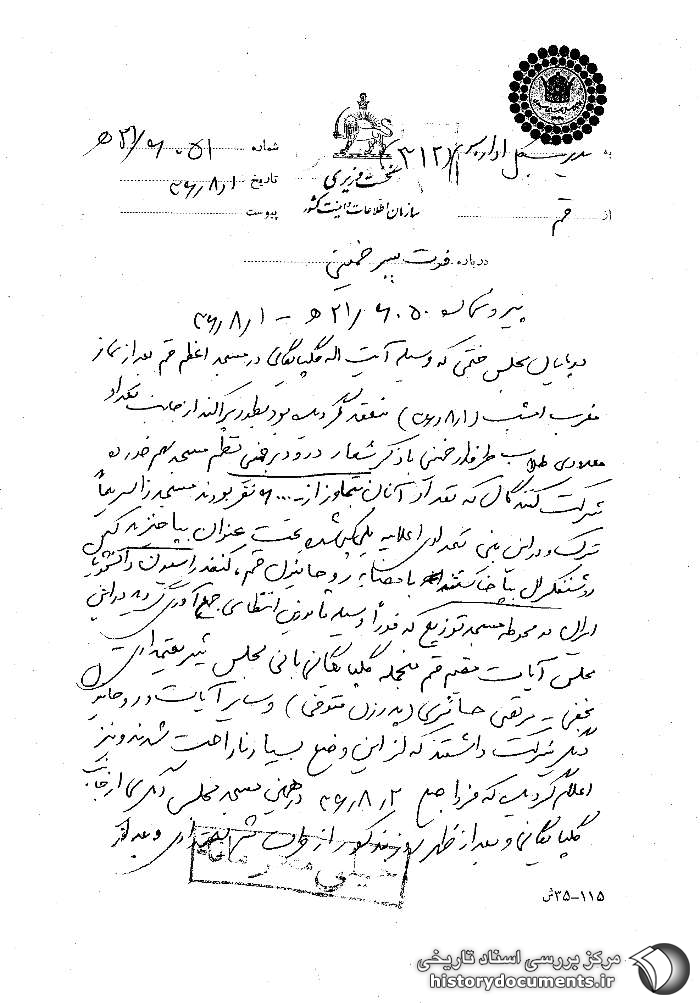 به مدیریت کل اداره سوم (۳۱۲)
شماره ۲۱/۶۰۵۱ ه
نخست وزیری
تاریخ ۳۶/۸/۱
از قم
سازمان اطلاعات و امنیت کشور
پیوست
درباره فوت پسر خمینی
پیرو شماره ۲۱/۶۰۵۰ ه – ۳۶/۸/۱
در پایان مجلس ختمی که وسیله آیت اله گلپایگانی در مسجد اعظم قم بعد از نماز
مغرب امشب (۳۶/۸/۱) منعقد گردیده بود بطور پراکنده از جانب تعداد
معدودی طلاب طرفدار خمینی با ذکر شعار درود بر خمینی نظم مسجد بهم خورده
شرکت کنندگان که تعداد آنان متجاوز از ۶۰۰۰ نفر بودند مسجد را سریعاً
ترک و در این بین تعدادی اعلامیه پلی کپی شده تحت عنوان بپا خیزید کمی
روشنفکران بپا خاستند با امضاء روحانیون قم، کنفدراسیون دانشجویان
ایران در محوطه مسجد توزیع که فوراً وسیله مامورین انتظامی جمع آوری گردید در این
مجلس آیات مقیم قم منجمله گلپایگانی بانی مجلس شریعتمداری
نجفی – مرتضی حائری (پدر زن متوفی) و سایر آیات و روحانیون
دیگر شرکت داشتند که از این وضع بسیار ناراحت شدند و نیز
اعلام گردید که فردا صبح ۳۶/۸/۲ در همین مسجد مجلس دیگری از جانب
گلپایگانی و بعد از ظهر روز مذکور از طرف شریعتمداری و بعد از
خیلی محرمانه
۱۱۵–۳۵ش
مرکز بررسی اسناد تاریخی
historydocuments.ir